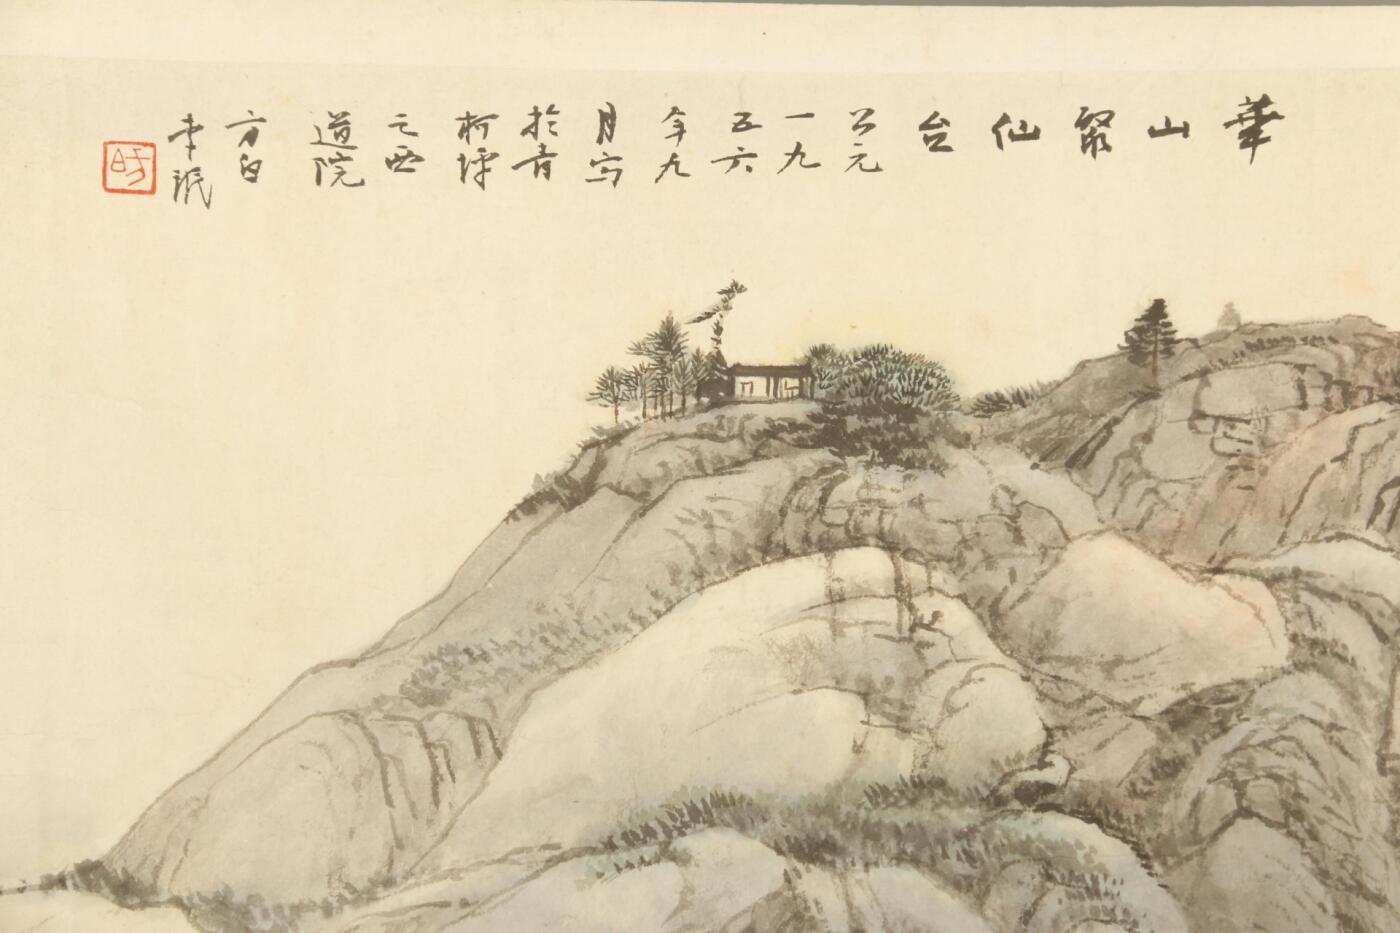 華山聚仙台
公元
一九
五六
年九
月写
於青
柯坪
之西
道院
方白
李